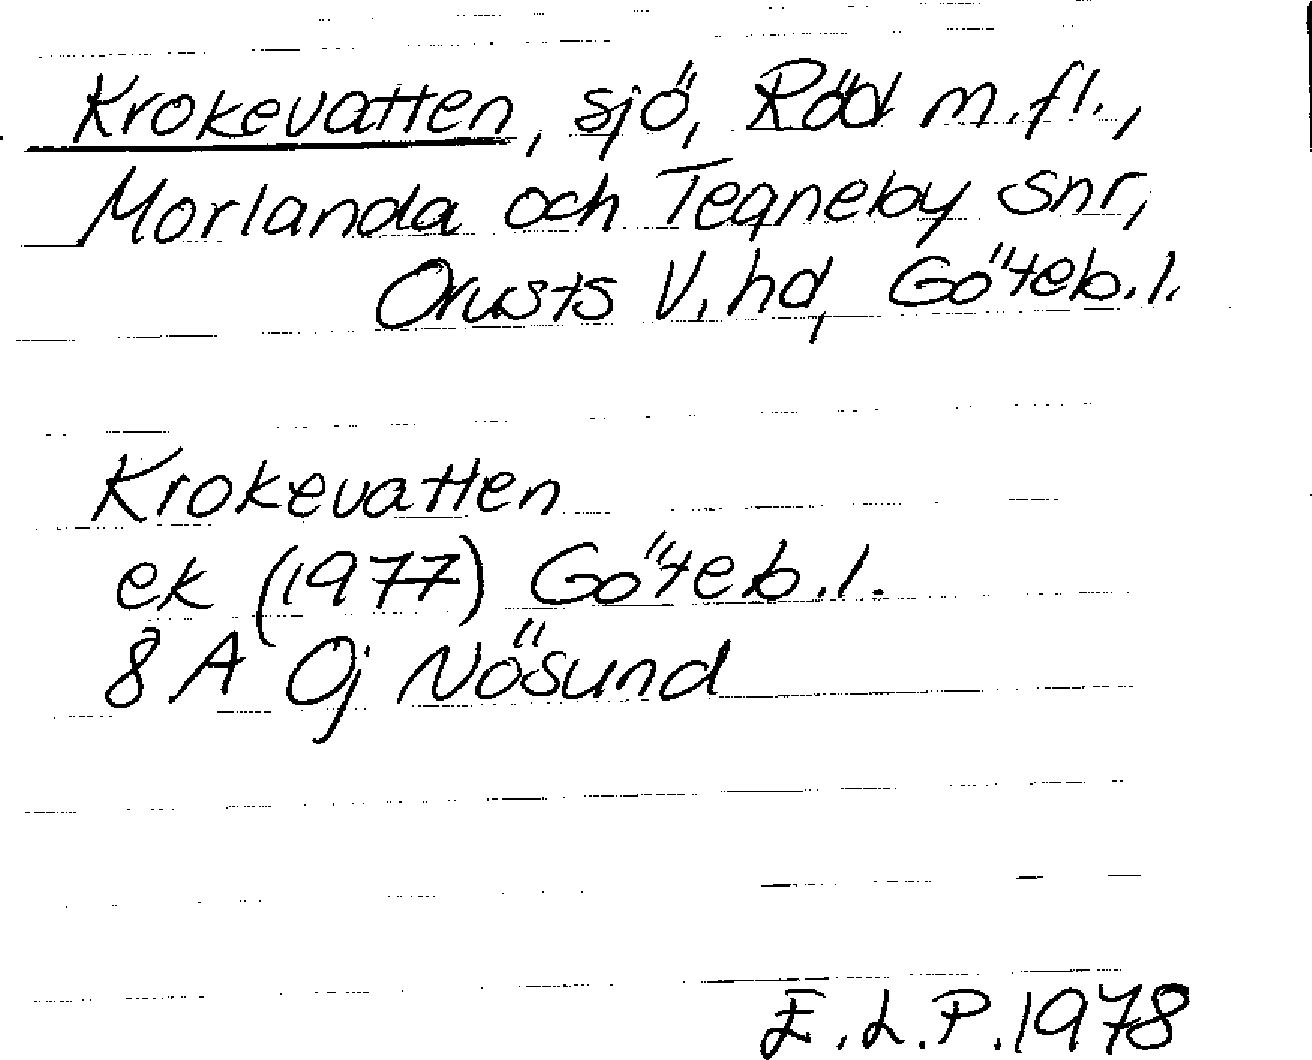 Krokevatten, sjö, Röd m.fl.,
Morlanda och Tegneby snr,
Orusts V. hd, Göteb. l.
Krokevatten
ek (1977) Göteb. l.
8 A 0j Nösund
E.L.P. 1978